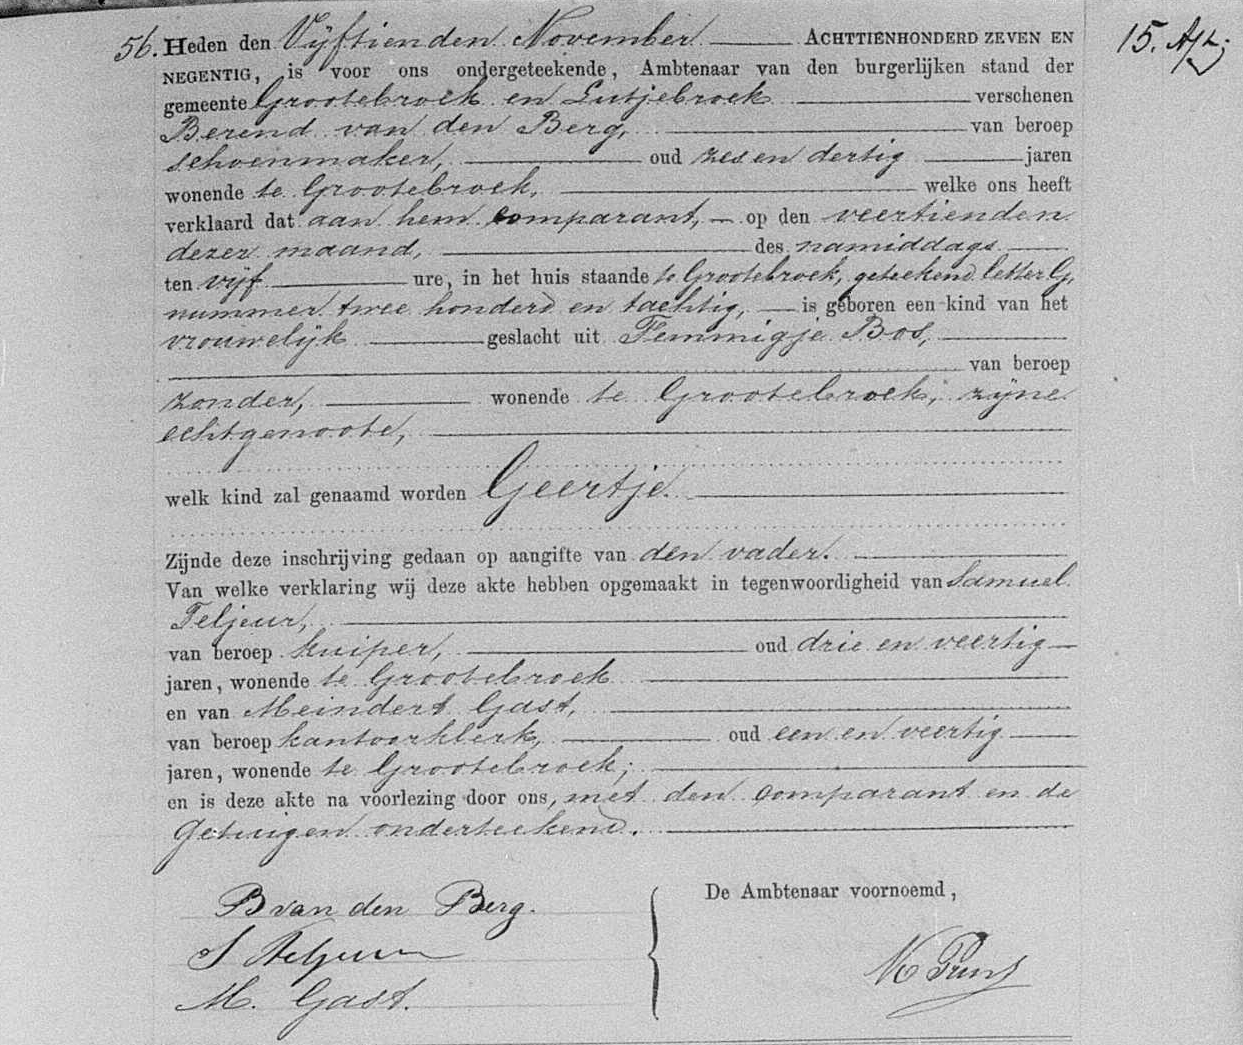 56. Heden den Vijftienden November ACHTTIENHONDERD ZEVEN EN
15.
NEGENTIG, is voor ons ondergeteekende, Ambtenaar van den burgerlijken stand der
gemeente Grootebroek en Lutjebroek verschenen
Berend van den Berg, van beroep
schoenmaker, oud zes en dertig jaren
wonende te Grootebroek, welke ons heeft
verklaard dat aan hem comparant, op den veertienden
dezer maand, des namiddags
ten vijf ure, in het huis staande te Grootebroek, geteekend letter G,
nummer twee honderd en tachtig, is geboren een kind van het
vrouwelijk geslacht uit Femmigje Bos,
van beroep
zonder, wonende te Grootebroek, zijne
echtgenoote,
welk kind zal genaamd worden Geertje.
Zijnde deze inschrijving gedaan op aangifte van den vader.
Van welke verklaring wij deze akte hebben opgemaakt in tegenwoordigheid van Samuel
Teljeur,
van beroep kuiper, oud drie en veertig
jaren, wonende te Grootebroek
en van Meindert Gast,
van beroep kantoorklerk, oud een en veertig
jaren, wonende te Grootebroek;
en is deze akte na voorlezing door ons, met den comparant en de
getuigen onderteekend.
De Ambtenaar voornoemd,
B van den Berg.
S Teljeur
M. Gast.